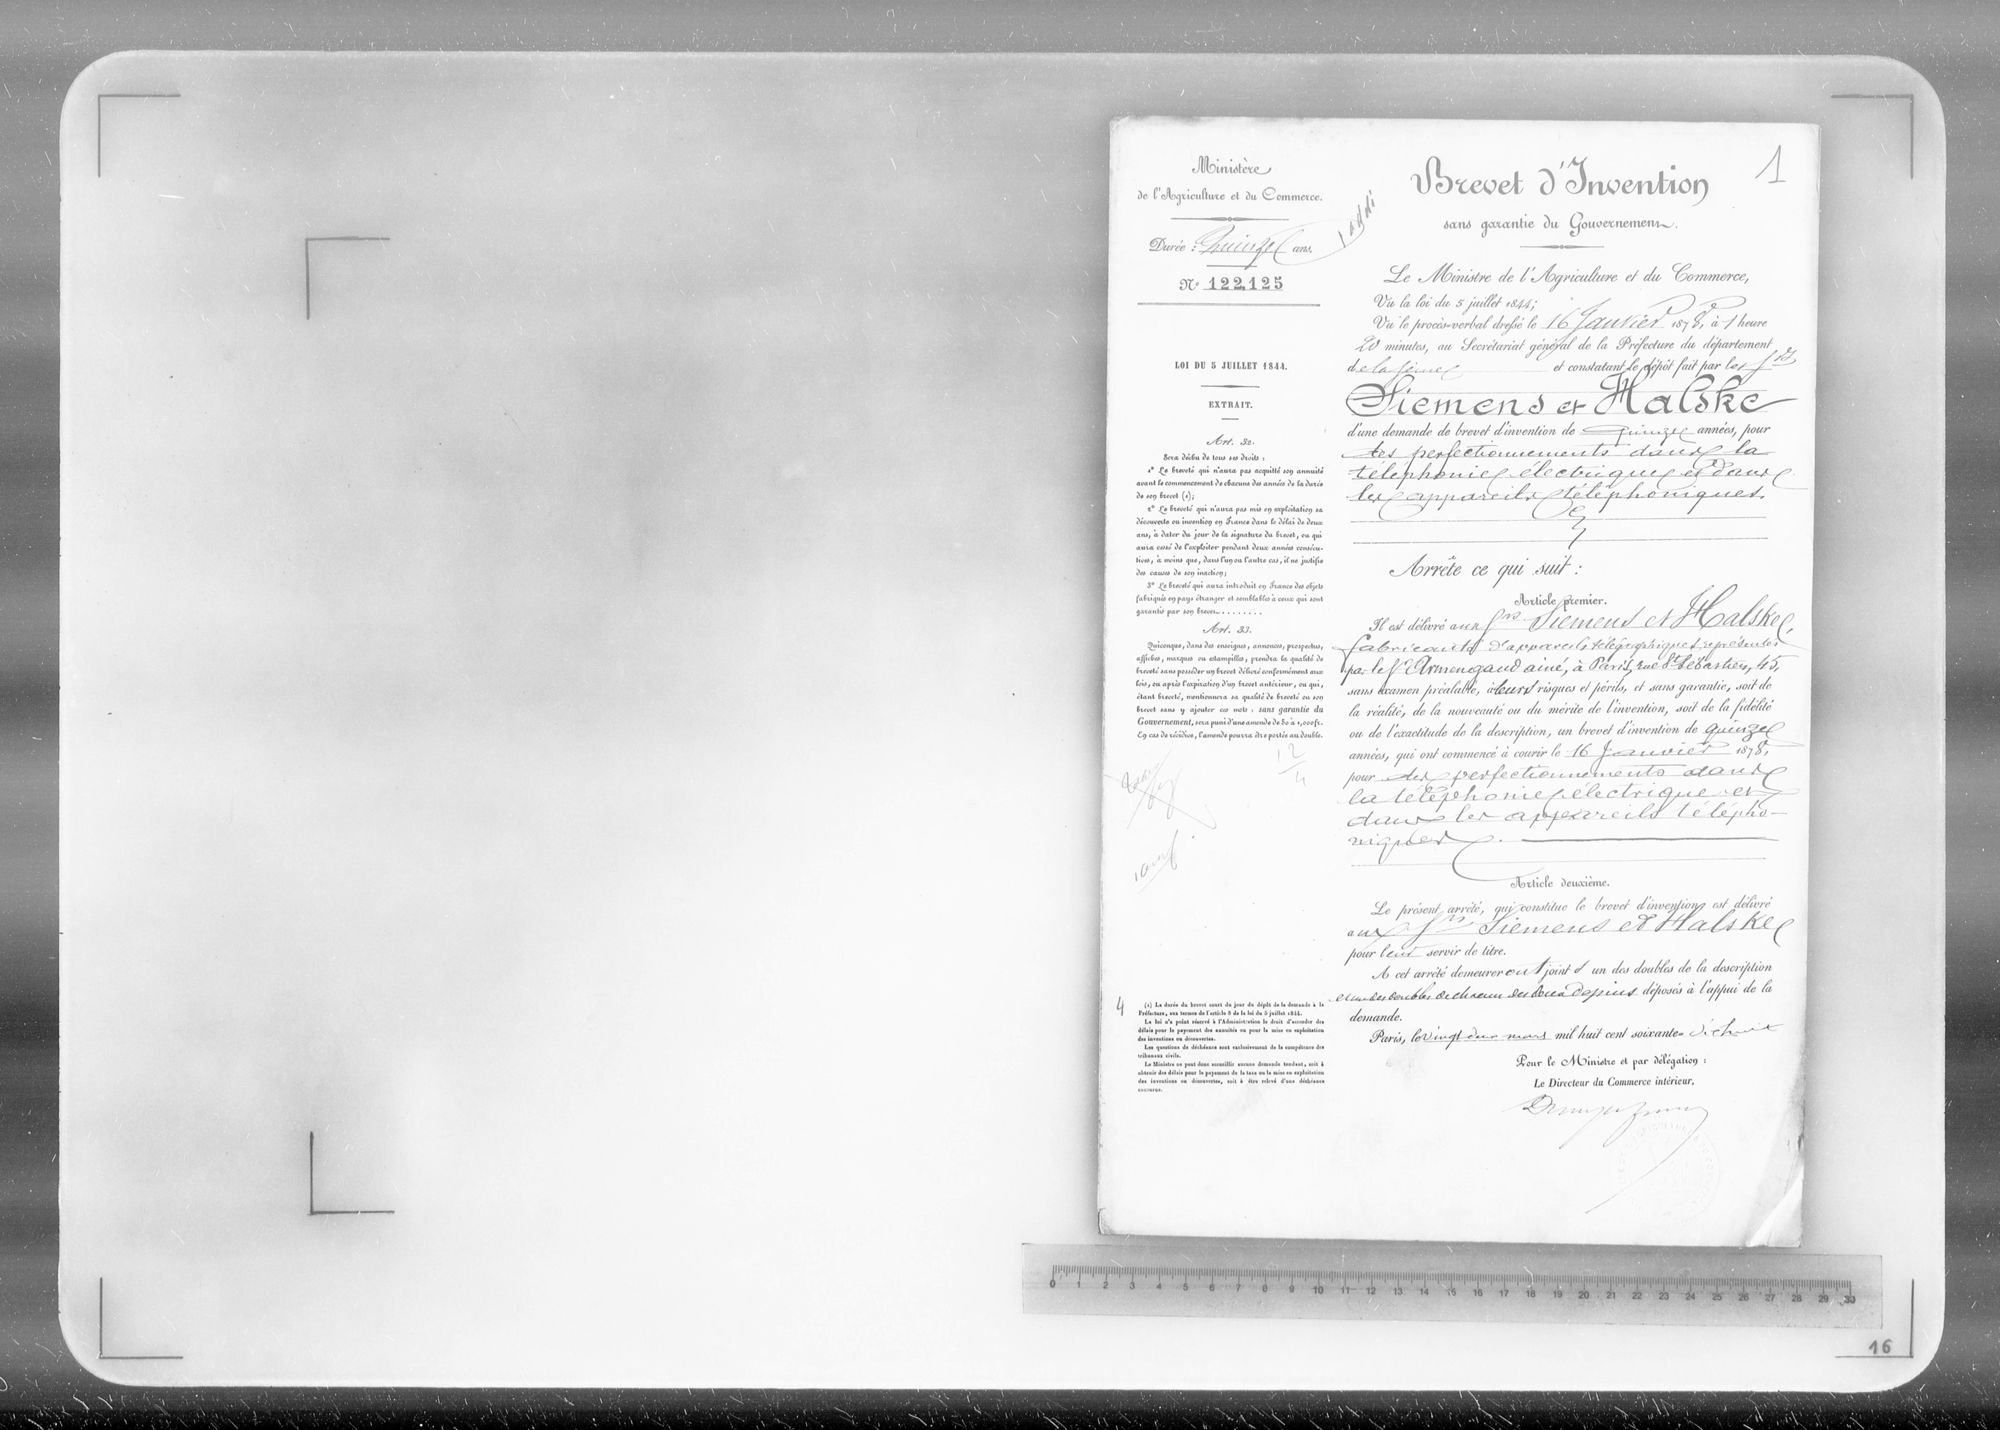 Ministère
de l'Agriculture et du Commerce.
Durée : Quinze ans.
N° 122,125
LOI DU 5 JUILLET 1844.
EXTRAIT.
Art. 32.
Sera déchu de tous ses droits :
1° Le breveté qui n'aura pas acquitté son annuité
avant le commencement de chacune des années de la durée
de son brevet (1);
2° Le breveté qui n'aura pas mis en exploitation sa
découverte ou invention en France dans le délai de deux
ans, à dater du jour de la signature du brevet, ou qui
aura cessé de l'exploiter pendant deux années consécu-
tives, à moins que, dans l'un ou l'autre cas, il ne justifie
des causes de son inaction;
3° Le breveté qui aura introduit en France des objets
fabriqués en pays étranger et semblables à ceux qui sont
garantis par son brevet........
Art. 33.
Quiconque, dans des enseignes, annonces, prospectus,
affiches, marques ou estampilles, prendra la qualité de
breveté sans posséder un brevet délivré conformément aux
lois, ou après l'expiration d'un brevet antérieur, ou qui,
étant breveté, mentionnera sa qualité de breveté ou son
brevet sans y ajouter ces mots : sans garantie du
Gouvernement, sera puni d'une amende de 50 à 1,000 fr.
En cas de récidive, l'amende pourra être portée au double.
12
4
4
(1) La durée du brevet court du jour du dépôt de la demande à la
Préfecture, aux termes de l'article 8 de la loi du 5 juillet 1844.
La loi n'a point réservé à l'Administration le droit d'accorder des
délais pour le payement des annuités ou pour la mise en exploitation
des inventions ou découvertes.
Les questions de déchéance sont exclusivement de la compétence des
tribunaux civils.
Le Ministre ne peut donc accueillir aucune demande tendant, soit à
obtenir des délais pour le payement de la taxe ou la mise en exploitation
des inventions ou découvertes, soit à être relevé d'une déchéance
encourue.
1
Brevet d'Invention
sans garantie du Gouvernement.
Le Ministre de l'Agriculture et du Commerce,
Vu la loi du 5 juillet 1844;
Vu le procès-verbal dressé le 16 Janvier 1878, à 1 heure
20 minutes, au Secrétariat général de la Préfecture du département
de la Seine et constatant le dépôt fait par les Srs
Siemens et Halske
d'une demande de brevet d'invention de quinze années, pour
des perfectionnements dans la
téléphonie électrique et dans
les appareils téléphoniques.
Arrête ce qui suit :
Article premier.
Il est délivré aux Srs Siemens et Halske,
fabricants d'appareils télégraphiques, représentés
par le Sr Armengaud ainé, à Paris, rue St Sébastien, 45,
sans examen préalable, à leurs risques et périls, et sans garantie, soit de
la réalité, de la nouveauté ou du mérite de l'invention, soit de la fidélité
ou de l'exactitude de la description, un brevet d'invention de quinze
années, qui ont commencé à courir le 16 Janvier 1878,
pour des perfectionnements dans
la téléphonie électrique et
dans les appareils télépho-
niques.
Article deuxième.
Le présent arrêté, qui constitue le brevet d'invention est délivré
aux Srs Siemens et Halske
pour leur servir de titre.
A cet arrêté demeureront joints un des doubles de la description
et un des doubles de chacun des deux dessins déposés à l'appui de la
demande.
Paris, le vingt deux mars mil huit cent soixante-dix huit
Pour le Ministre et par délégation :
Le Directeur du Commerce intérieur,
0 1 2 3 4 5 6 7 8 9 10 11 12 13 14 15 16 17 18 19 20 21 22 23 24 25 26 27 28 29 30
16